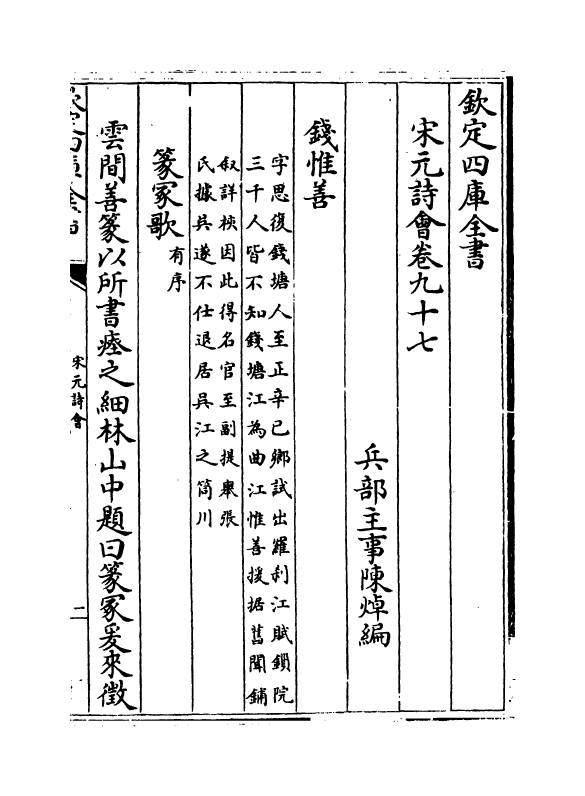 欽定四庫全書
宋元詩會卷九十七
兵部主事陳焯編
錢惟善
字思復錢塘人至正辛巳鄉試出羅刹江賦鎖院
三千人皆不知錢塘江為曲江惟善援据舊聞鋪
叙詳核因此得名官至副提舉張
氏據吳遂不仕退居吳江之筒川
篆冢歌有序
雲間善篆以所書瘞之細林山中題曰篆冢爰來徵
宋元詩會
二